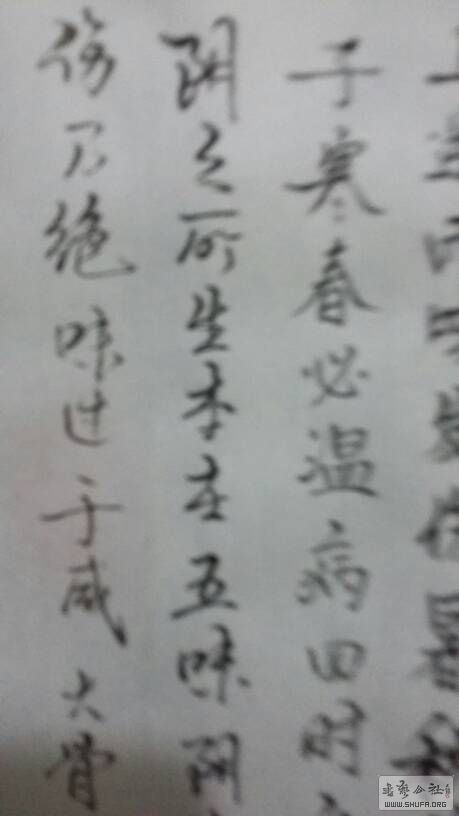 于寒春必温病四时
阴之所生本在五味阴
伤乃绝味过于咸大骨
书艺公社
WWW.SHUFA.ORG